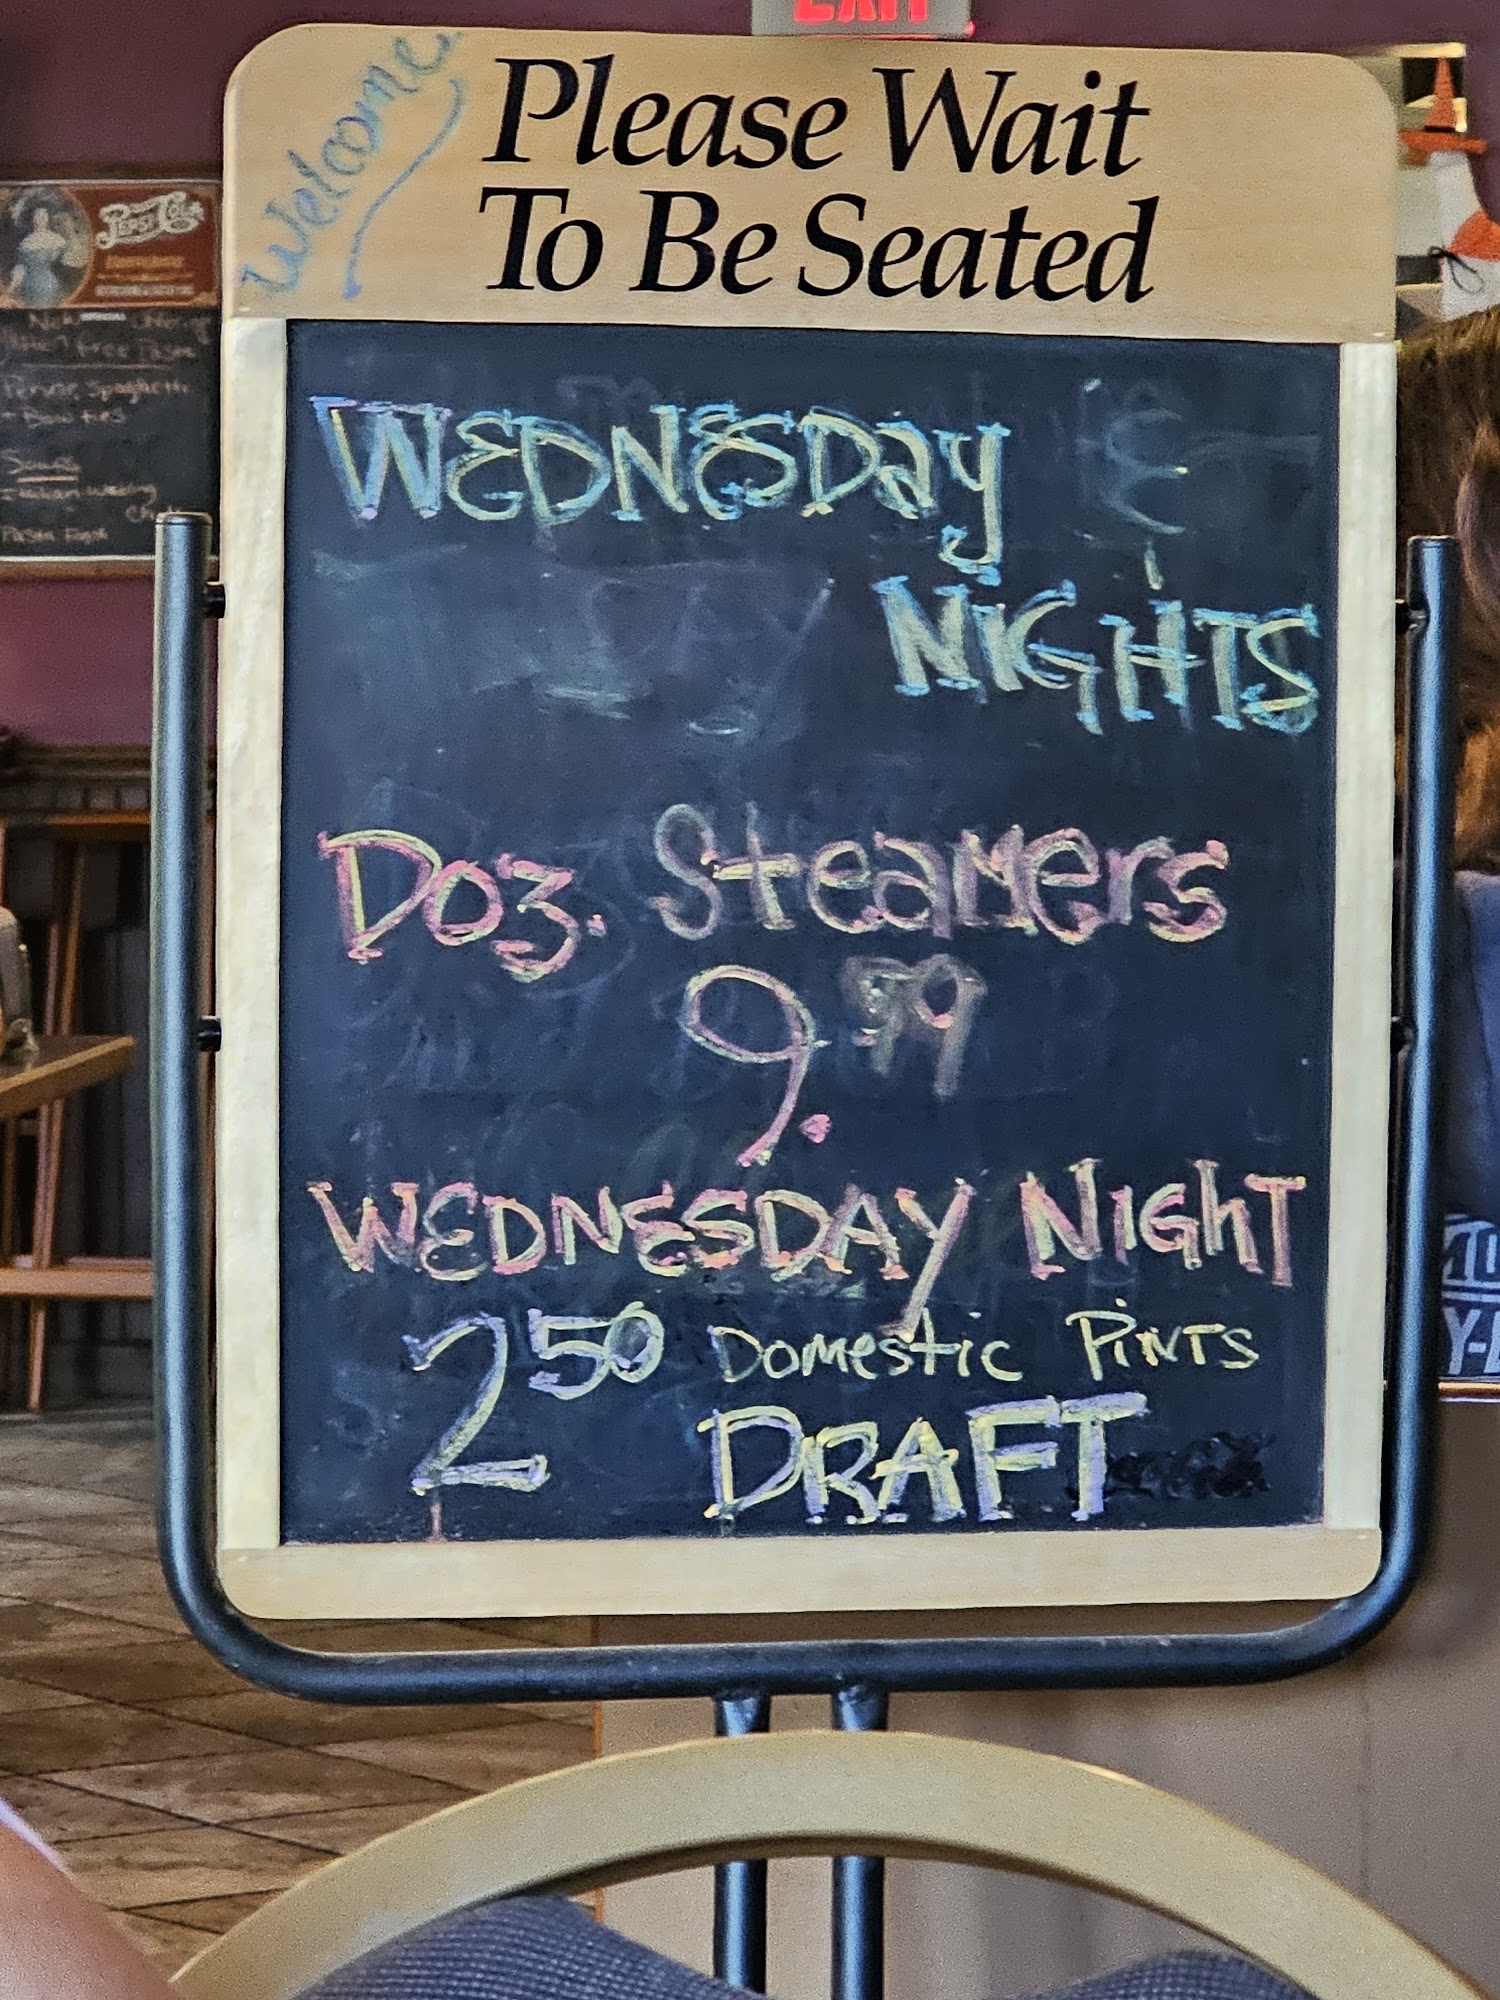 EXIT
Welcome
Please Wait
To Be Seated
WEDNESDay
NIGHTS
Doz. Steamers
9.99
WEDNESDAY NIGhT
2 50 Domestic PiNTS
DRAFT
PEPSI-Cola
Gluten Free Pasta
Penne Spaghetti
Pasta Fagi